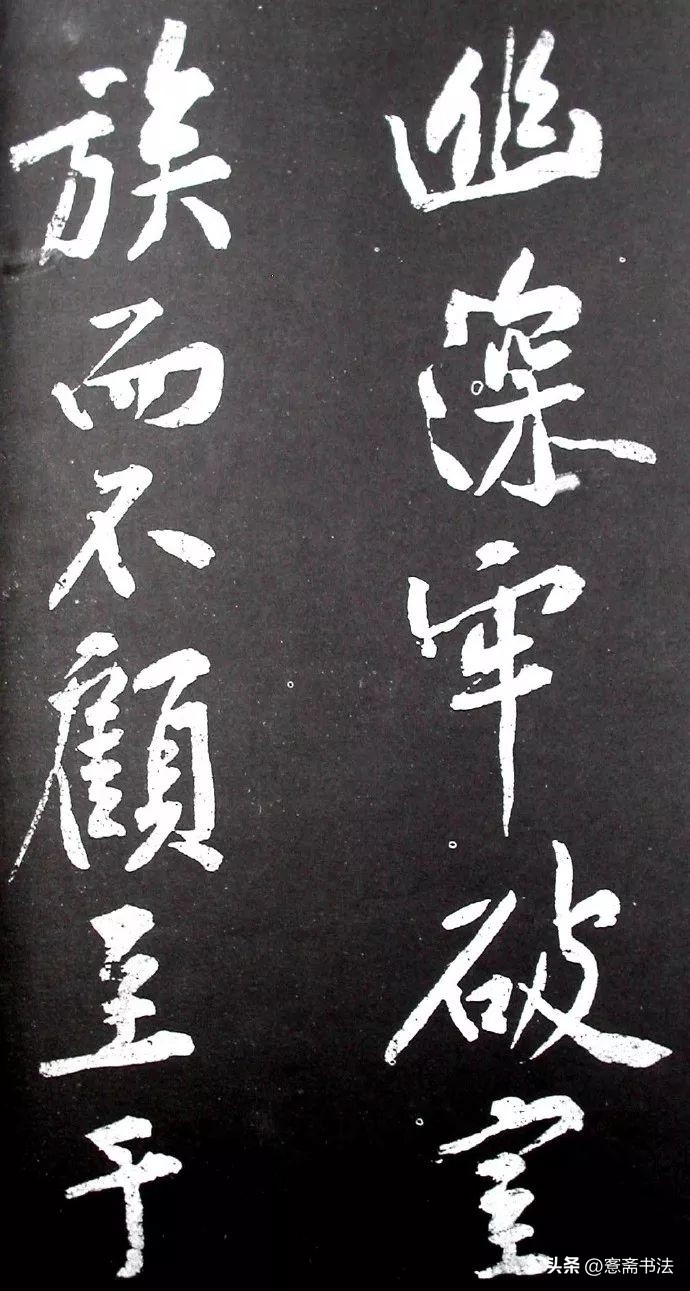 幽深牢破室
族而不顧至于
头条@寋斋书法